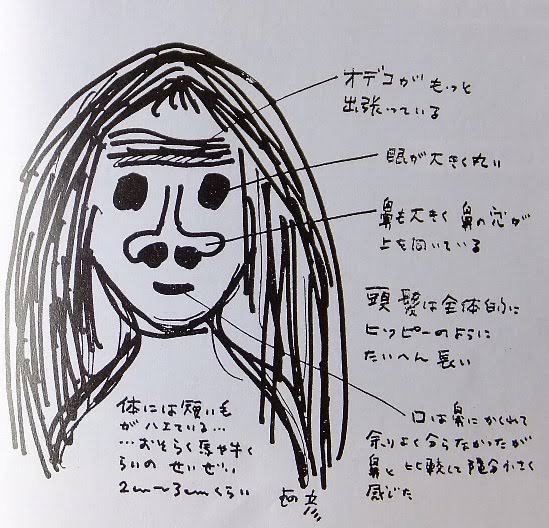 オデコがもっと
出張っている
眼が大きく丸い
鼻も大きく鼻の穴が
上を向いている
頭髪は全体的に
ヒッピーのように
たいへん長い
口は鼻にかくれて
余りよく分らなかったが
鼻と比較して随分小さく
感じた
体には短い毛
がハエている…
…おそらく馬や牛く
らいの せいぜい
2cm〜3cmくらい